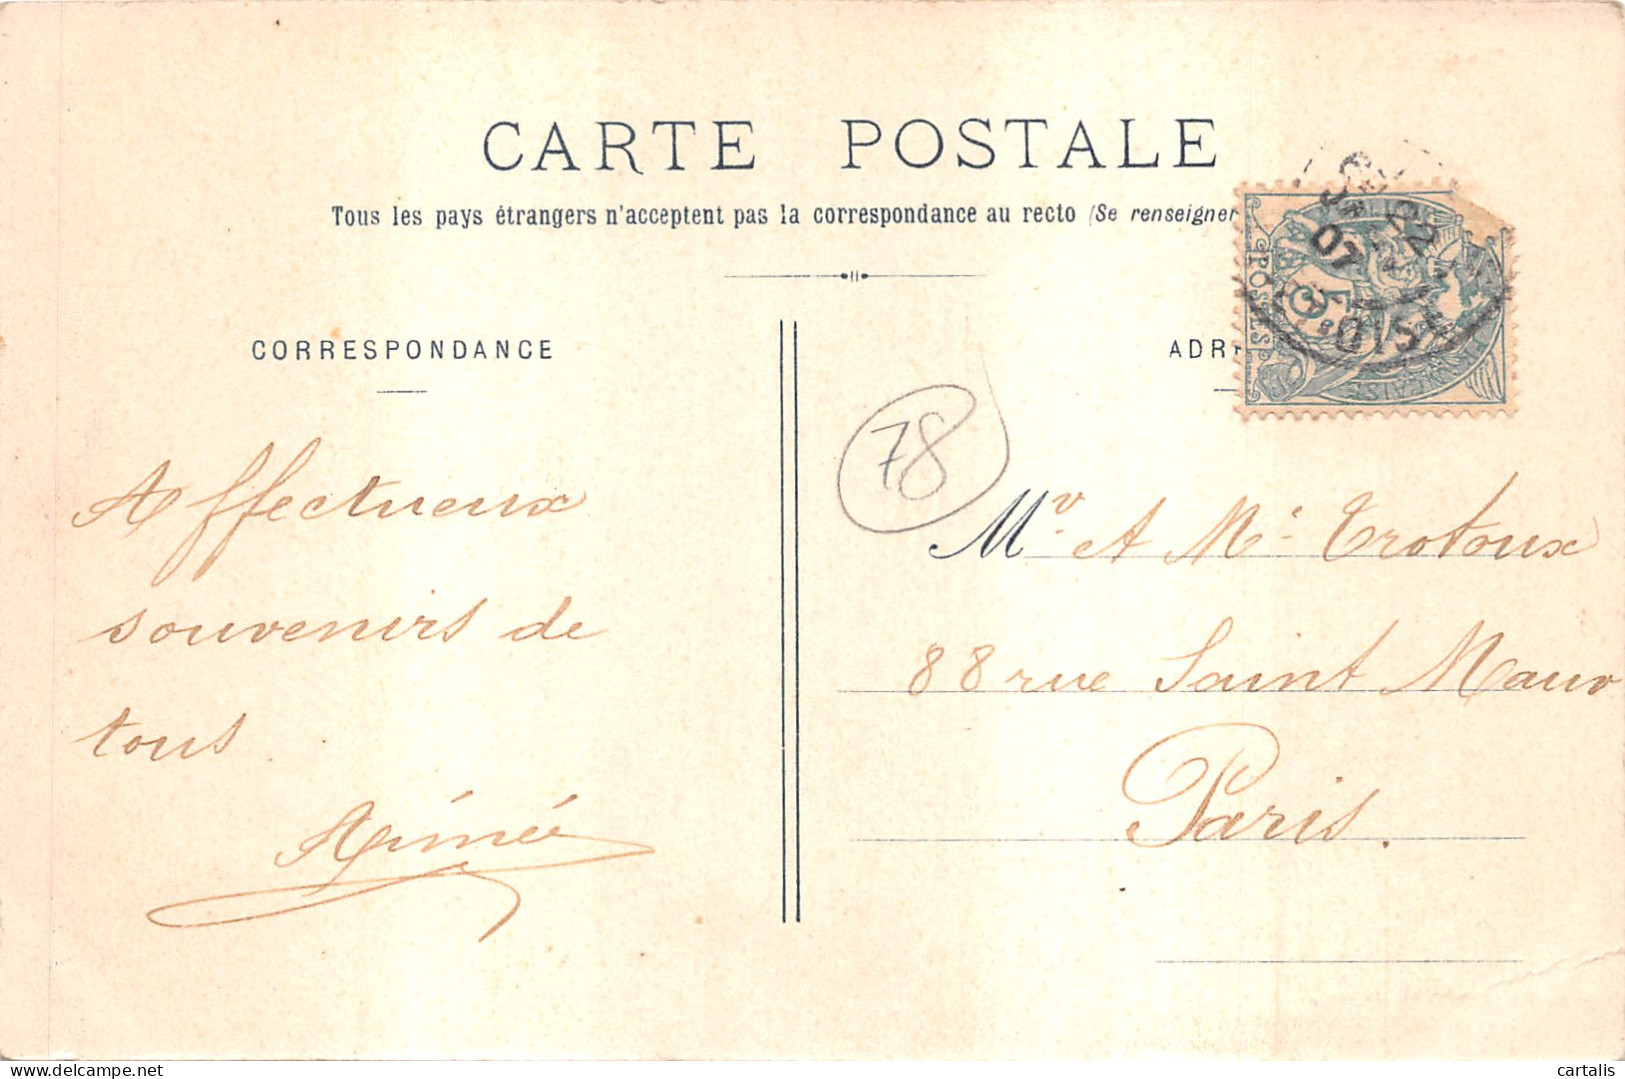 CARTE POSTALE
Tous les pays étrangers n'acceptent pas la correspondance au recto (Se renseigner
CORRESPONDANCE
ADR
POSTES
5
22
07
OISE
78
Affectueux
souvenirs de
tous
Aimé
Mr. et Me. Trotoux
88 rue Saint Maur
Paris.
delcampe.net
cartalis